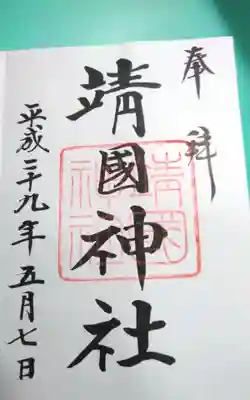 奉拝
靖國神社
平成二十九年五月七日
靖国神社